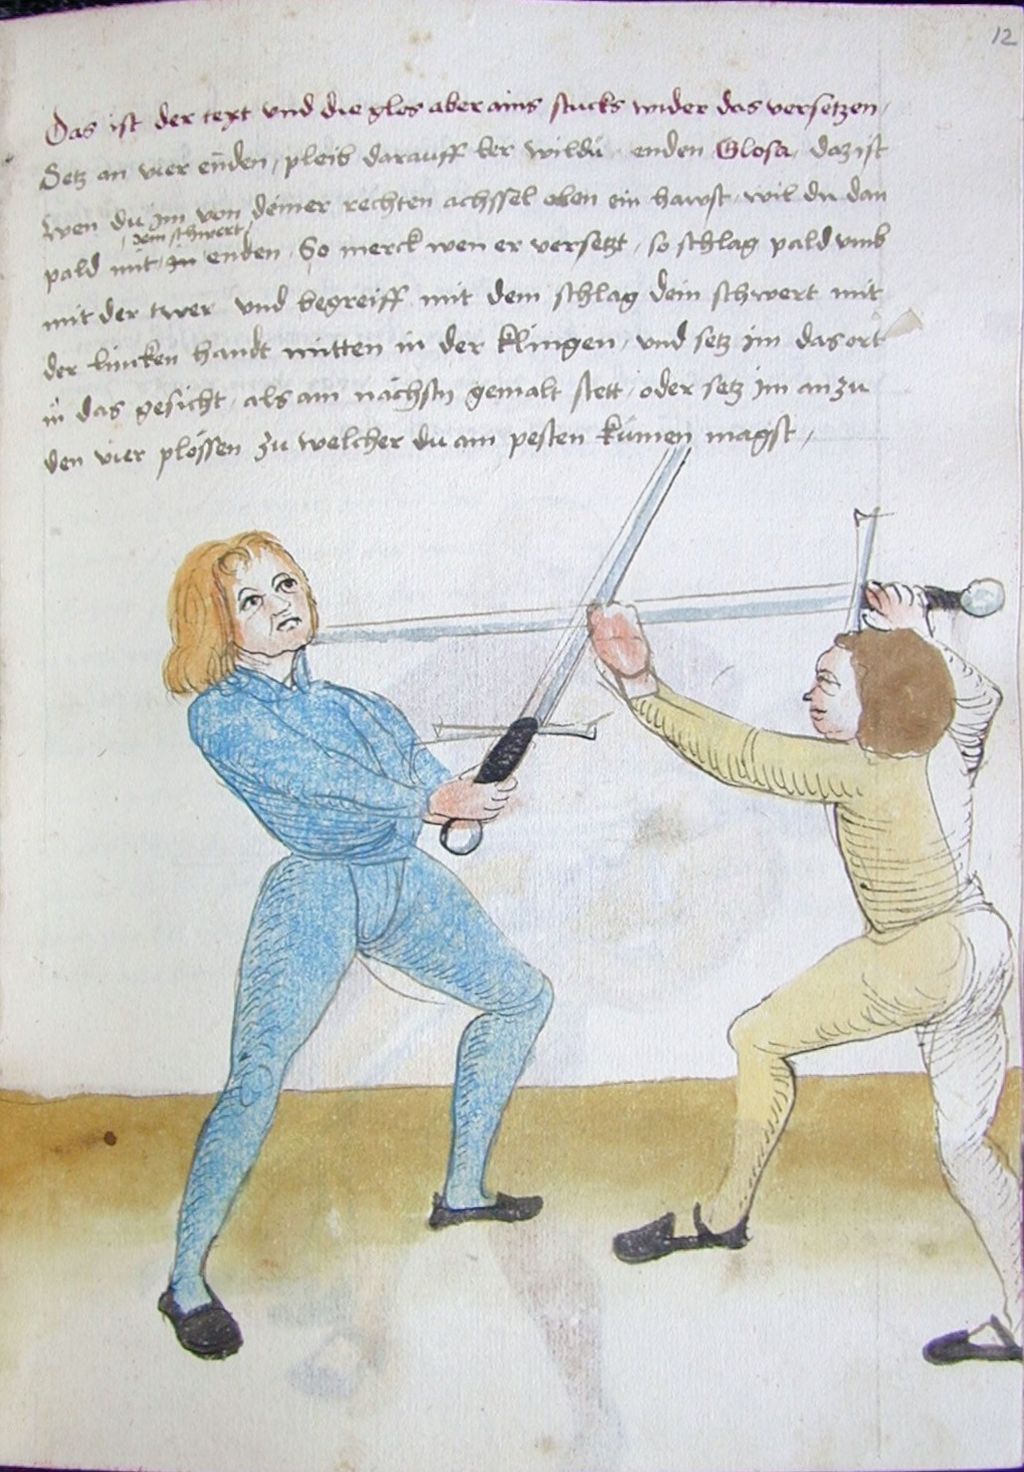 12
Das ist der text vnd die glos aber ains stucks wider das versetzen,
Setz an vier eñden, pleib darauff ler wildu enden Glosa, daz ist
wen du im von deiner rechten achssel oben ein hawst, wil du dan
dein schwert
pald mit zu enden, So merck wen er versetzt, so schlag pald vmb
mit der twer vnd begreiff mit dem schlag dein schwert mit
der lincken handt mitten in der klingen, vnd setz im das ort
in das gesicht, als am nächstn gemalt stett, oder setz im an zu
den vier plössen zu welcher du am pesten kümen magst,